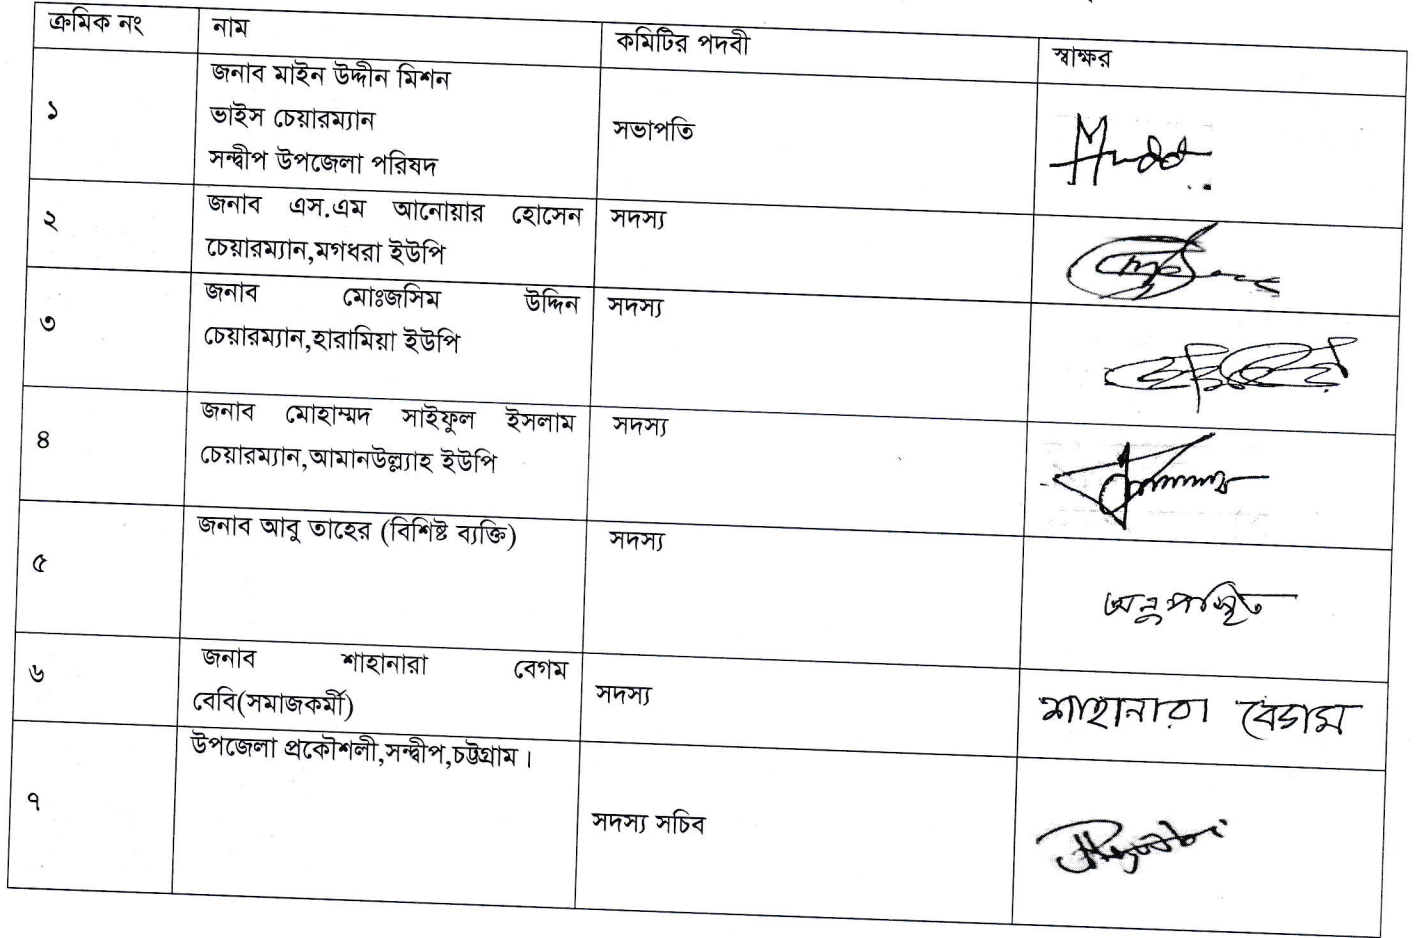 ক্রমিক নং নাম কমিটির পদবী স্বাক্ষর
জনাব মাইন উদ্দীন মিশন
১ ভাইস চেয়ারম্যান সভাপতি
সন্দ্বীপ উপজেলা পরিষদ
২ জনাব এস.এম আনোয়ার হোসেন সদস্য
চেয়ারম্যান,মগধরা ইউপি
৩ জনাব মোঃজসিম উদ্দিন সদস্য
চেয়ারম্যান,হারামিয়া ইউপি
৪ জনাব মোহাম্মদ সাইফুল ইসলাম সদস্য
চেয়ারম্যান,আমানউল্ল্যাহ ইউপি
৫ জনাব আবু তাহের (বিশিষ্ট ব্যক্তি) সদস্য
অনুপস্থিত
৬ জনাব শাহানারা বেগম
বেবি(সমাজকর্মী) সদস্য শাহানারা বেগম
উপজেলা প্রকৌশলী,সন্দ্বীপ,চট্টগ্রাম।
৭ সদস্য সচিব